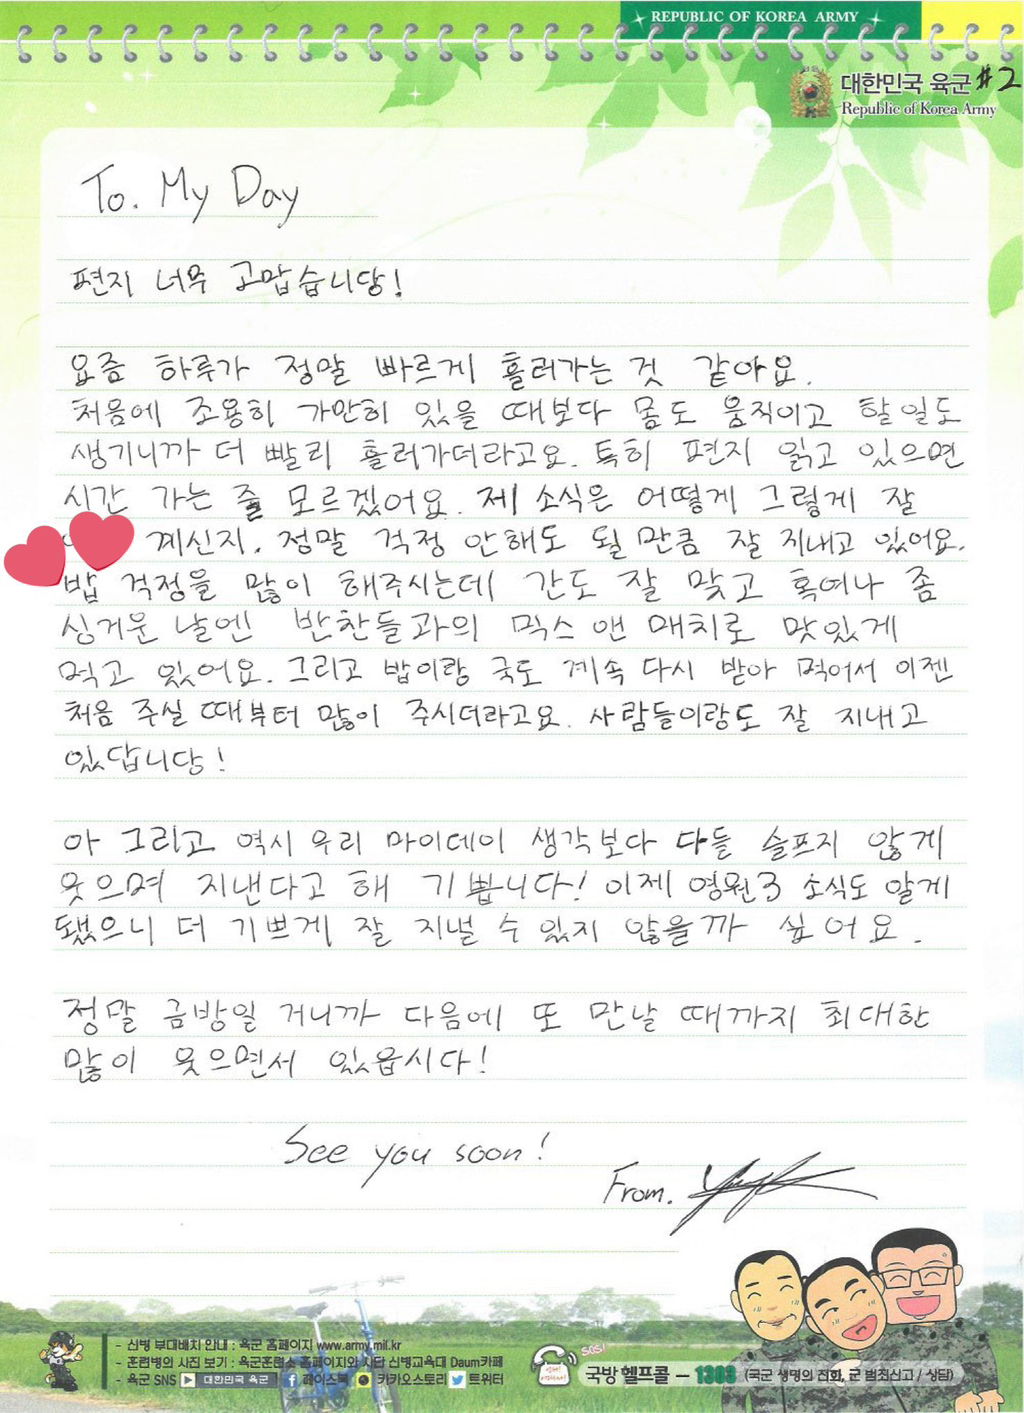 REPUBLIC OF KOREA ARMY
대한민국 육군 #2
Republic of Korea Army
To. My Day
편지 너무 고맙습니당!
요즘 하루가 정말 빠르게 흘러가는 것 같아요.
처음에 조용히 가만히 있을 때보다 몸도 움직이고 할일도
생기니까 더 빨리 흘러가더라고요. 특히 편지 읽고 있으면
시간 가는 줄 모르겠어요. 제 소식은 어떻게 그렇게 잘
계신지. 정말 걱정 안해도 될 만큼 잘 지내고 있어요.
밥 걱정을 많이 해주시는데 간도 잘 맞고 혹여나 좀
싱거운 날엔 반찬들과의 믹스 앤 매치로 맛있게
먹고 있어요. 그리고 밥이랑 국도 계속 다시 받아 먹어서 이젠
처음 주실 때부터 많이 주시더라고요. 사람들이랑도 잘 지내고
있답니당!
아 그리고 역시 우리 마이데이 생각보다 다들 슬프지 않게
웃으며 지낸다고 해 기쁩니다! 이제 영원3 소식도 알게
됐으니 더 기쁘게 잘 지낼 수 있지 않을까 싶어요.
정말 금방일 거니까 다음에 또 만날 때까지 최대한
많이 웃으면서 있읍시다!
See you soon!
From.
- 신병 부대배치 안내 : 육군 홈페이지 www.army.mil.kr
- 훈련병의 사진 보기 : 육군훈련소 홈페이지와 사단 신병교육대 Daum카페
- 육군 SNS 대한민국 육군 페이스북 카카오스토리 트위터
SOS!
국방헬프콜 - 1303 (국군 생명의 전화, 군 범죄신고 / 상담)